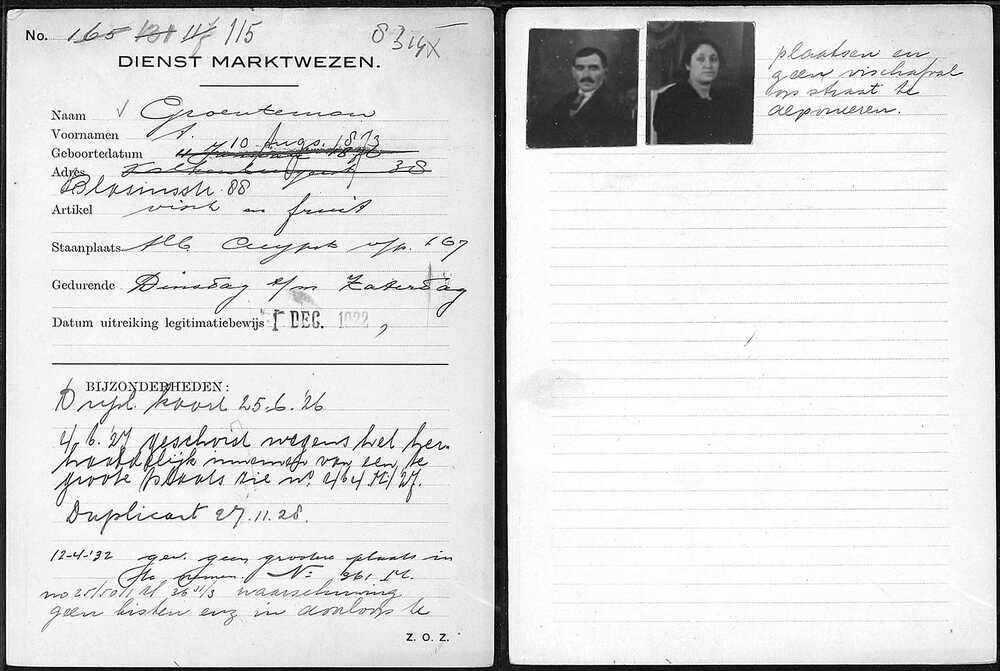 No. 165 131 115
DIENST MARKTWEZEN.
Naam Groenteman
Voornamen A.
10 Aug. 1873
Geboortedatum
Adres 38
Blasiusstr. 88
Artikel visch en fruit
Staanplaats Alb. Cuypst v/p. 167
Gedurende Dinsdag t/m Zaterdag
Datum uitreiking legitimatiebewijs 1 DEC. 1922
BIJZONDERHEDEN:
Dupl. kaart 25.6.'26
4.6.'27 geschorst wegens het her-
haaldelijk innemen van een te
groote plaats zie no. 464 M/27.
Duplicaat 27.11.28.
12-4-'32 gew. geen grootere plaats in
te nemen. No 261 M.
no 25/50/1 M 36 waarschuwing
geen kisten enz in doorloop te
Z. O. Z.
plaatsen en
geen vischafval
op straat te
deponeren.